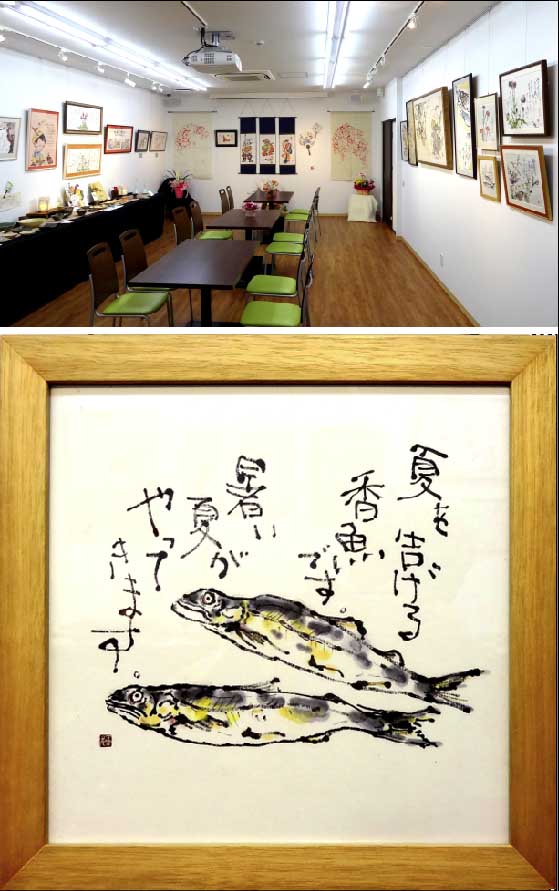 夏を
告げる
香魚
です。
暑い
夏が
やって
きます。